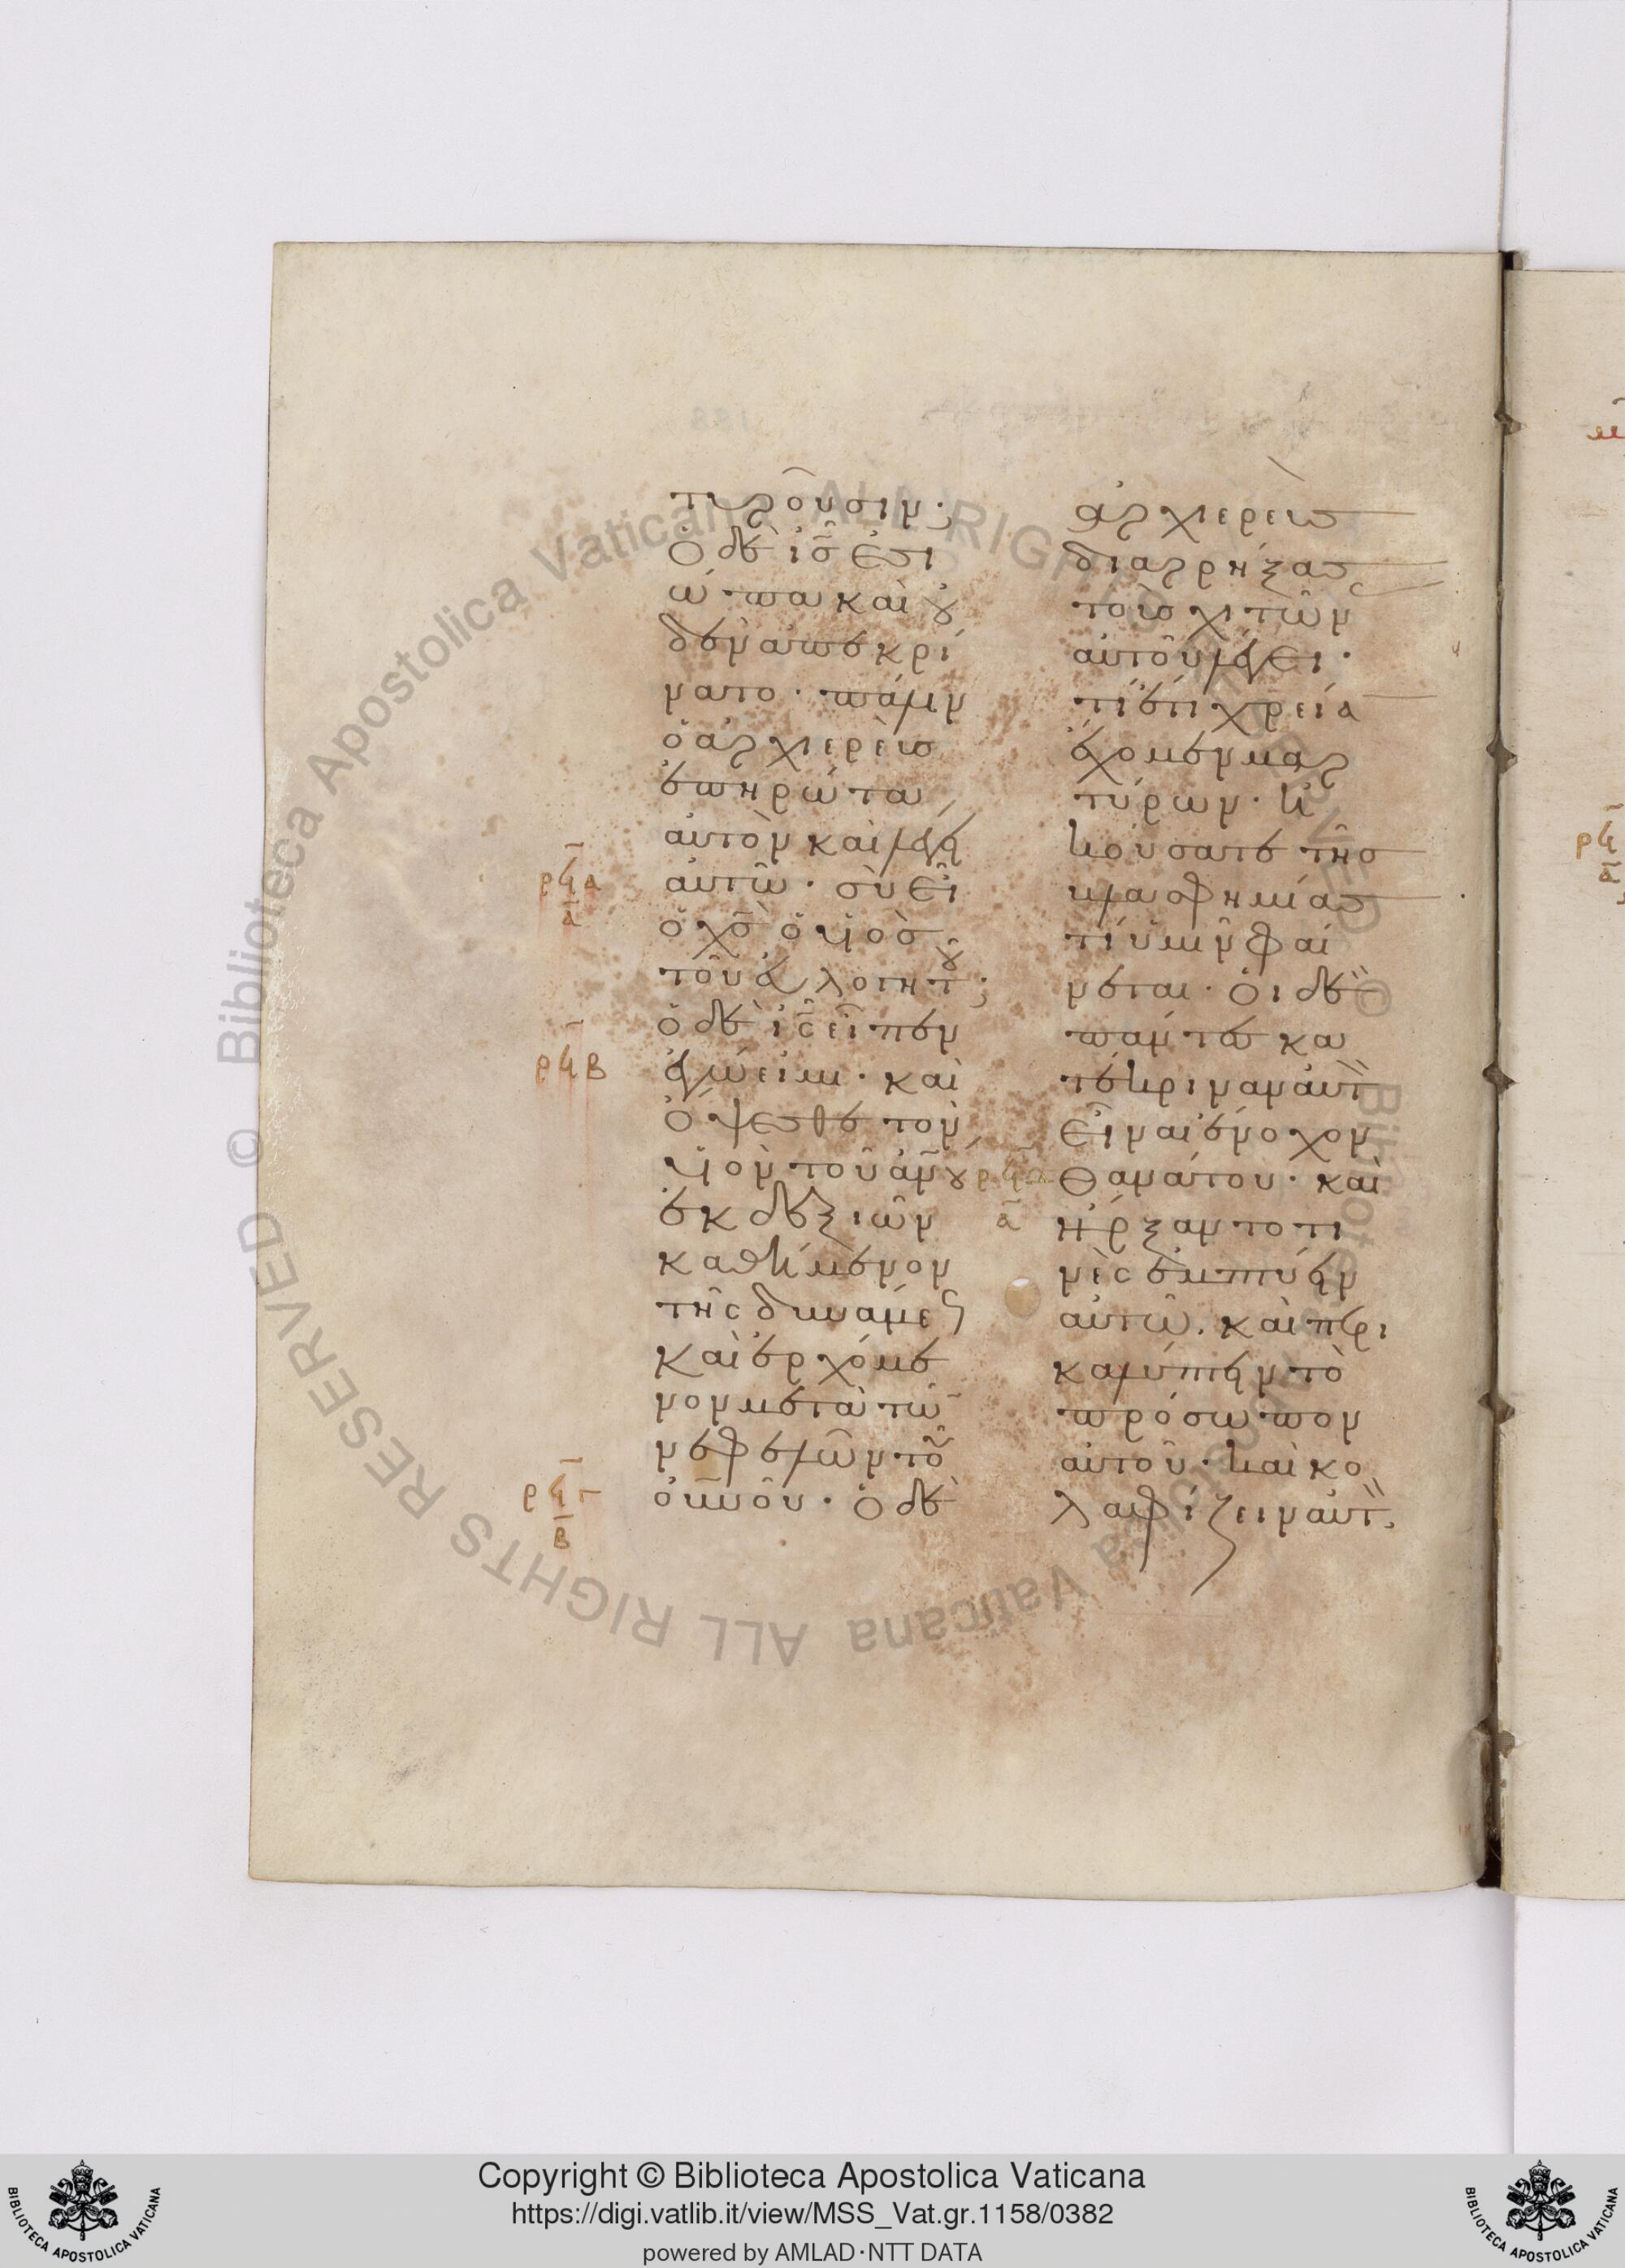 τυροῦσιν;
Ὁ δὲ ι̅σ̅ ἐσι
ώπα καὶ οὐ
δὲν ἀπεκρί
νατο· πάλιν
ὁ ἀρχιερεὺσ
ἐπηρώτα
αὐτὸν καὶ λέγει
ρϟα
α
αὐτῶ· σὺ εἶ
ὁ χ̅σ̅ ὁ υἱὸσ
τοῦ εὐλογητοῦ;
ὁ δὲ ι̅ς̅ εἶπεν
ρϟβ
ἐγώ εἰμι· καὶ
ὄψεσθε τὸν
υἱὸν τοῦ α̅ν̅ο̅υ̅
ἐκ δεξιῶν
καθήμενον
τῆς δυνάμεως
καὶ ἐρχόμε
νον μετὰ τῶ̅
νεφελῶν τοῦ
ρϟγ
β
ο̅υ̅ν̅οῦ· Ὁ δὲ
ἀρχιερεὺσ
διαρρήξασ
τοὺσ χιτῶν
αὐτοῦ λέγει·
τί ἔτι χρεία
ἔχομεν μαρ
τύρων· ἠ
κούσατε τῆσ
βλασφημίασ
τί ὑμῖν φαί
νεται· Οἱ δὲ
πάντες κα
τέκριναν αὐτ
εἶναι ἔνοχον
θανάτου· καὶ
α
ἤρξαντό τι
νὲς ἐμπτύειν
αὐτῶ. καὶ περι
καλύπτειν τὸ
πρόσωπον
αὐτοῦ· καὶ κο
λαφίζειν αὐτ.
Copyright © Biblioteca Apostolica Vaticana
https://digi.vatlib.it/view/MSS_Vat.gr.1158/0382
powered by AMLAD·NTT DATA
BIBLIOTECA APOSTOLICA VATICANA
BIBLIOTECA APOSTOLICA VATICANA
© Biblioteca Apostolica Vaticana ALL RIGHTS RESERVED
© Biblioteca Apostolica Vaticana ALL RIGHTS RESERVED